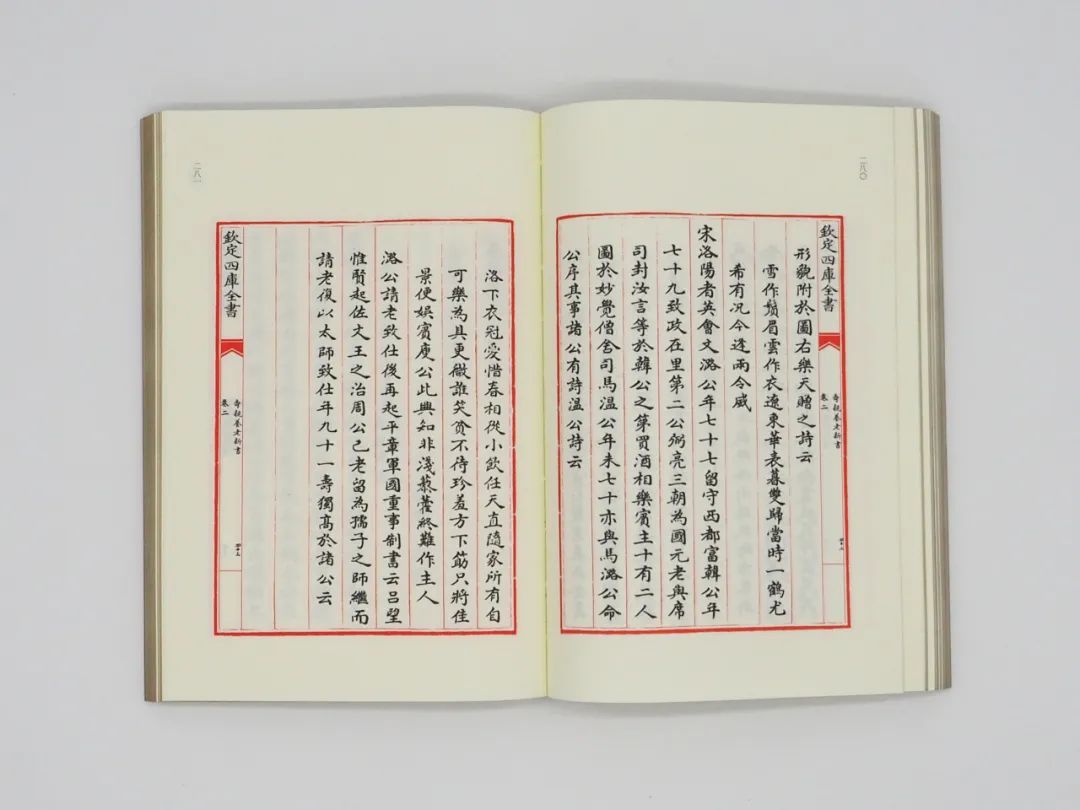 二八〇
欽定四庫全書
壽親養老新書
卷二
形貌附於圖右樂天贈之詩云
雪作鬚眉雲作衣遼東華表暮雙歸當時一鶴尤
希有况今逢兩令威
宋洛陽耆英會文潞公年七十七留守西都富韓公年
七十九致政在里第二公弼亮三朝為國元老與席
司封汝言等於韓公之第買酒相樂賓主十有二人
圖於妙覺僧舍司馬温公年未七十亦與焉潞公命
公序其事諸公有詩温公詩云
洛下衣冠愛惜春相從小飲任天真隨家所有自
可樂為具更微誰笑貧不待珍羞方下筯只將佳
景便娱賓庾公此興知非淺藜藿終難作主人
潞公請老致仕後再起平章軍國重事制書云吕望
惟賢起佐文王之治周公已老留為孺子之師繼而
請老復以太師致仕年九十一壽獨髙於諸公云
欽定四庫全書
壽親養老新書
卷二
二八一